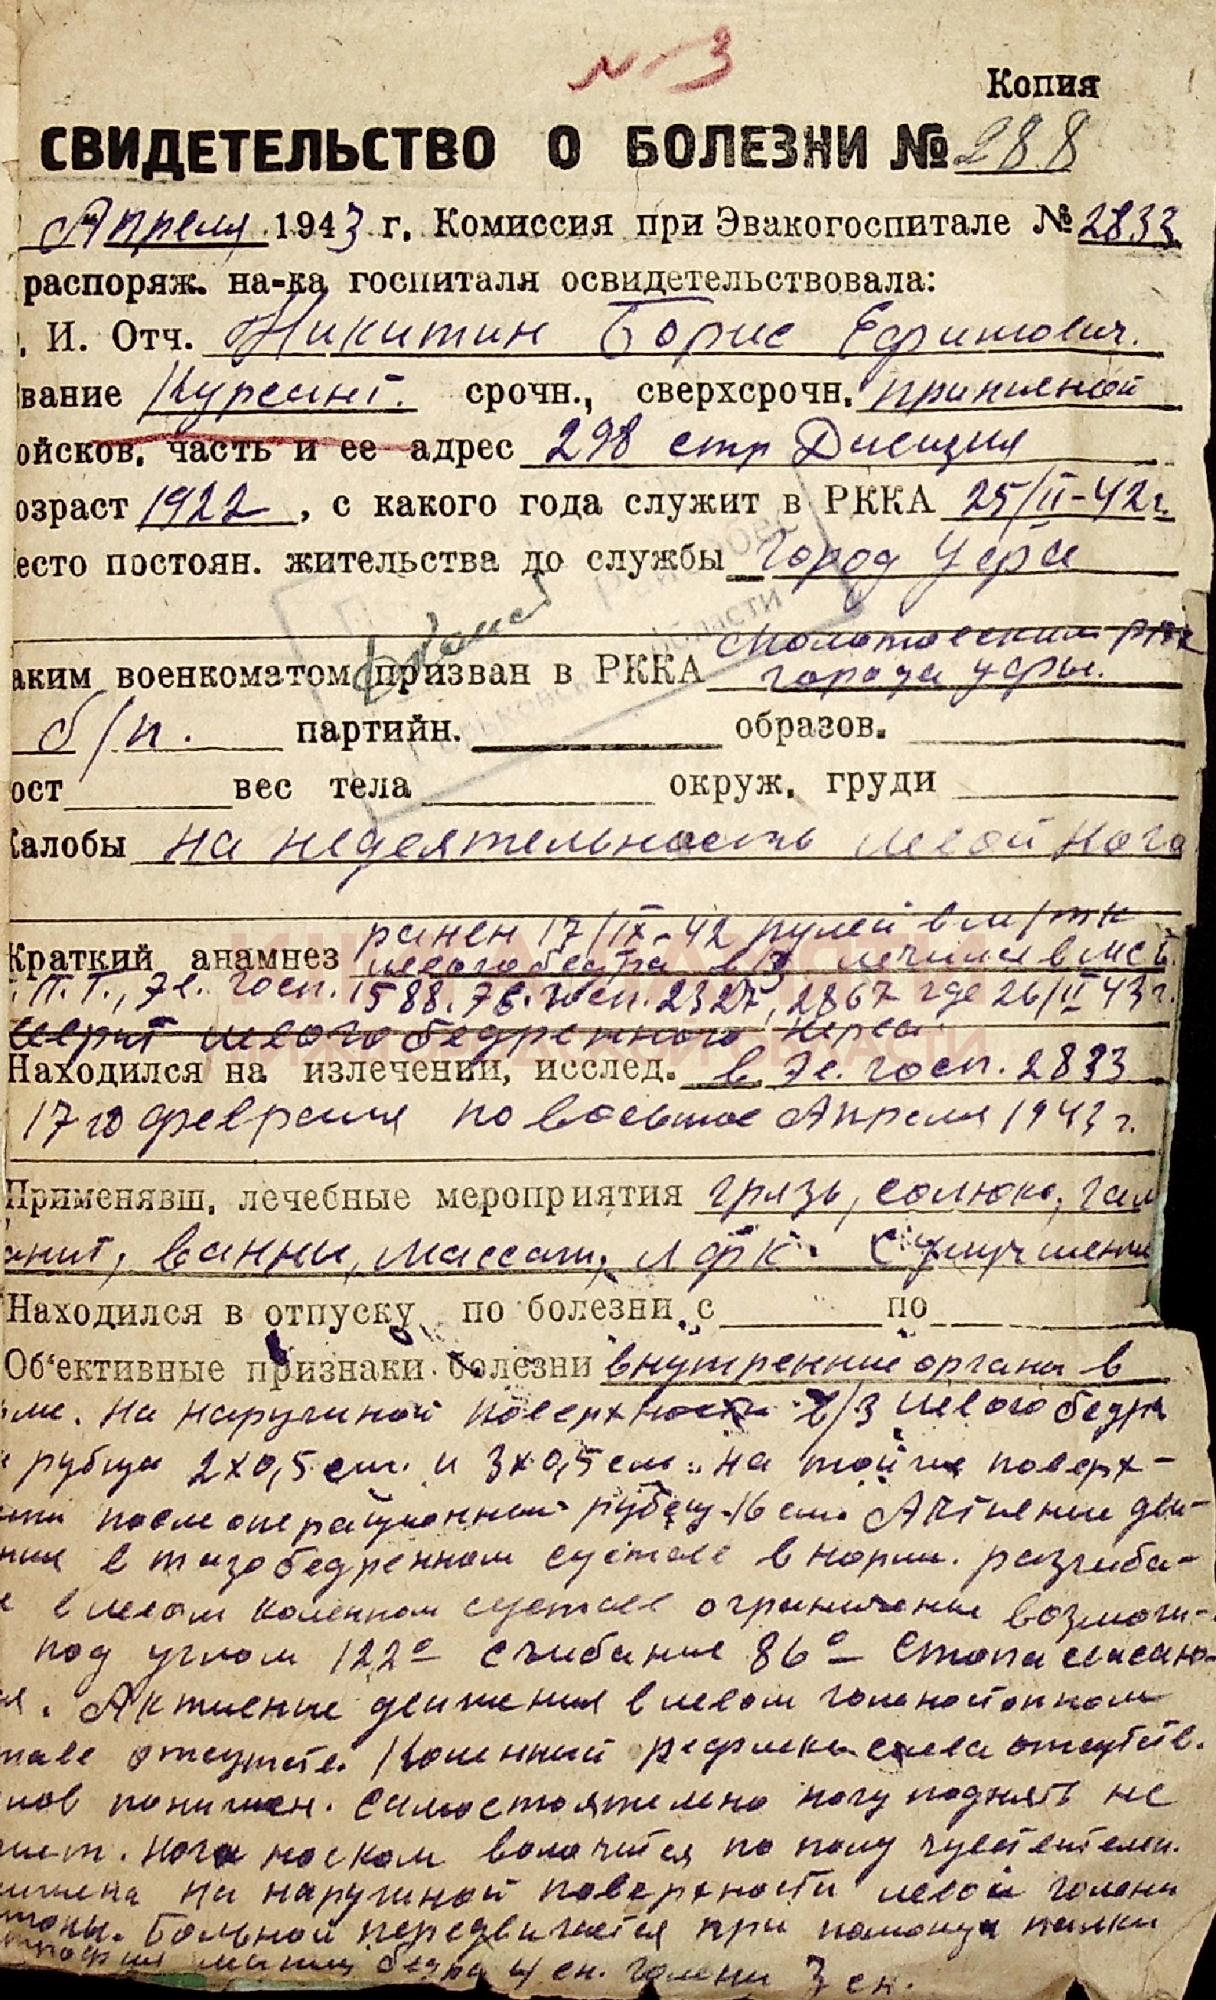 № 3
Копия
СВИДЕТЕЛЬСТВО О БОЛЕЗНИ № 288
Апреля 1943 г. Комиссия при Эвакогоспитале № 2833
распоряж. на-ка госпиталя освидетельствовала:
. И. Отч. Никитин Борис Ефимович.
вание Курсант. срочн., сверхсрочн. призывной
ойсков. часть и ее адрес 298 стр Дивизия
озраст 1922, с какого года служит в РККА 25/II-42 г.
есто постоян. жительства до службы город Уфа
аким военкоматом призван в РККА Молотовским РВК
города Уфы.
б/п. партийн. образов.
ост вес тела окруж. груди
алобы на недеятельность левой ноги
Краткий анамнез ранен 17/IX-42 пулей в м/тк
левого бедра в/3 лечился в МСБ.
П.Г., Эв. госп. 1588. Эв. госп. 2327, 2867 где 26/II 43 г.
неврит левого бедренного нерва.
Находился на излечении, исслед. в Эв. госп. 2833
17 го февраля по восьмое Апреля 1943 г.
Применявш. лечебные мероприятия грязь, солюкс, гал
ванны, массаж, ЛФК. С улучшением
Находился в отпуску по болезни с по
Об'ективные признаки болезни внутренние органы в
рме. На наружной поверхности в/3 левого бедра
рубца 2х0,5 см. и 3х0,5 см. На той же поверх-
сти послеоперационный рубец 16 см. Активные дви-
ния в тазобедренном суставе в норм. разгиба-
в левом коленном суставе ограничены возможн-
под углом 122° сгибание 86° Стопа свисаю-
ая. Активные движения в левом голеностопном
таве отсутств. Коленный рефлекс слева отсутств.
лов понижен. Самостоятельно ногу поднять не
жет. Нога носком волочится по полу чувствительн.
нижена на наружной поверхности левой голени
топы. Больной передвигается при помощи палки
трофия мышц бедра 4 см. голени 3 см.